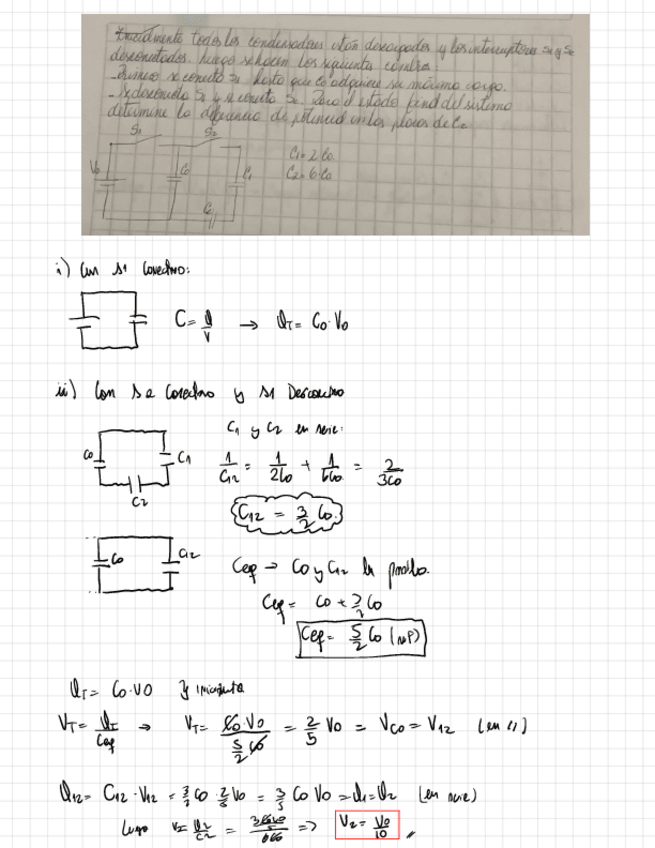 Inicialmente todos los condensadores están descargados y los interruptores S1 y S2
desconectados. Luego se hacen los siguientes cambios:
- Primero se conecta S1 hasta que Co adquiere su máxima carga.
- Se desconecta S1 y se conecta S2. Para el estado final del sistema
determine la diferencia de potencial en las placas de C2
S1 S2
Vo Co C1 C1 = 2Co
C2 = 6Co
C2
i) Con S1 conectado:
C = Q/V → QT = Co·Vo
ii) Con S2 conectado y S1 Desconectado
C1 y C2 en serie:
Co C1 1/C12 = 1/2Co + 1/6Co = 2/3Co
C2
C12 = 3/2 Co.
Co C12
Ceq → Co y C12 en paralelo.
Ceq = Co + 3/2 Co
Ceq = 5/2 Co
QT = Co·Vo
VT = QT/Ceq → VT = Co·Vo / 5/2 Co = 2/5 Vo = VCo = V12 (en //)
Q12 = C12 · V12 = 3/2 Co · 2/5 Vo = 3/5 Co Vo = Q1 = Q2 (en serie)
Luego V2 = Q2/C2 = 3CoVo/5 / 6Co => V2 = Vo/10 //